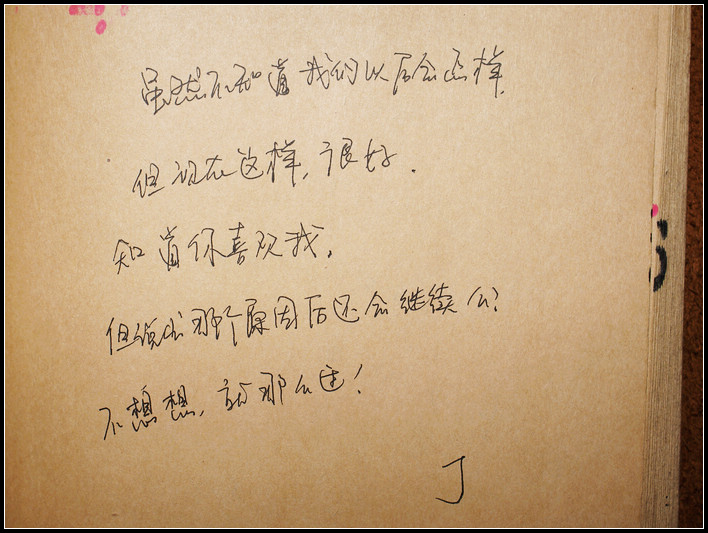 虽然不知道我们以后会怎样,
但现在这样,很好.
知道你喜欢我,
但说出那个原因后还会继续么?
不想想,就那么过!
J